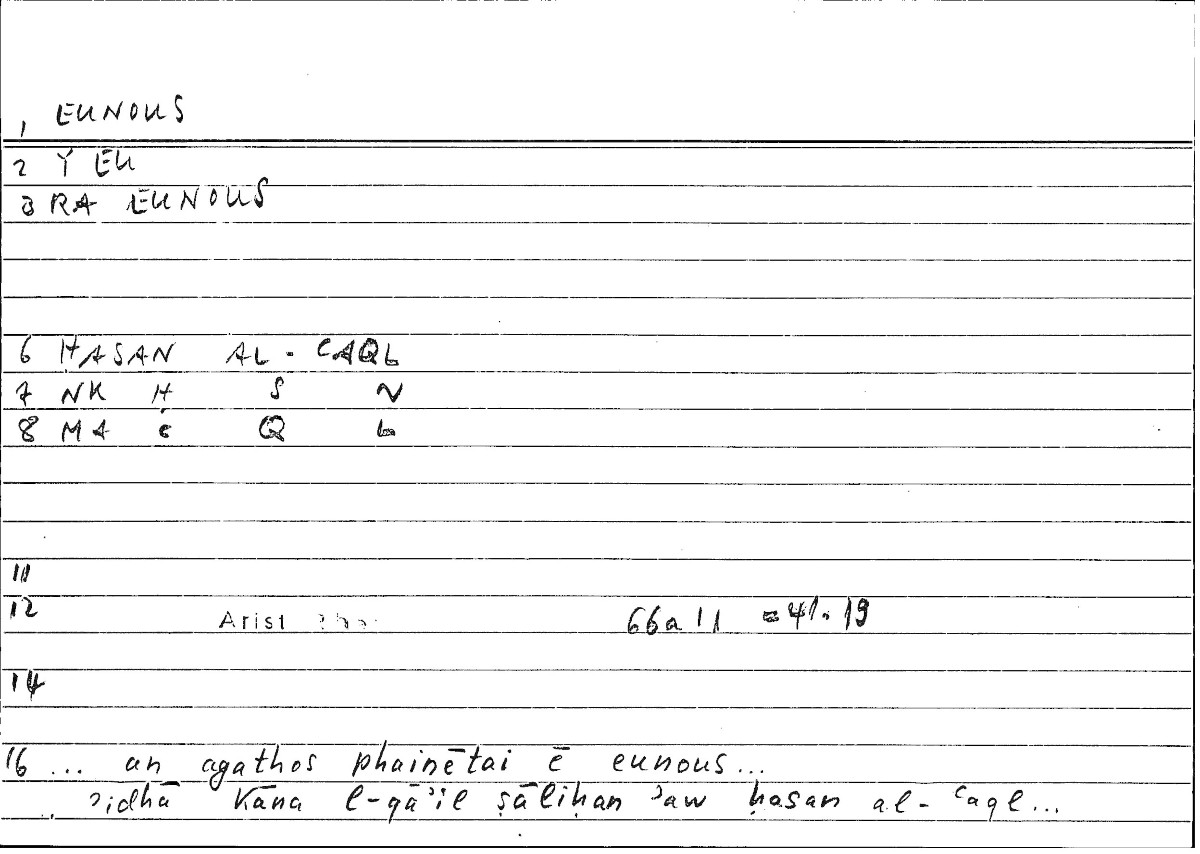 1 EUNOUS
2 Y EU
3 RA EUNOUS
6 ḤASAN AL-ʿAQL
7 NK Ḥ S N
8 MA ʿ Q L
11
12 Arist 66a11 = 41.19
14
16 ... an agathos phainētai ē eunous...
ʾidhā kāna l-qāʾil ṣāliḥan ʾaw ḥasan al-ʿaql...